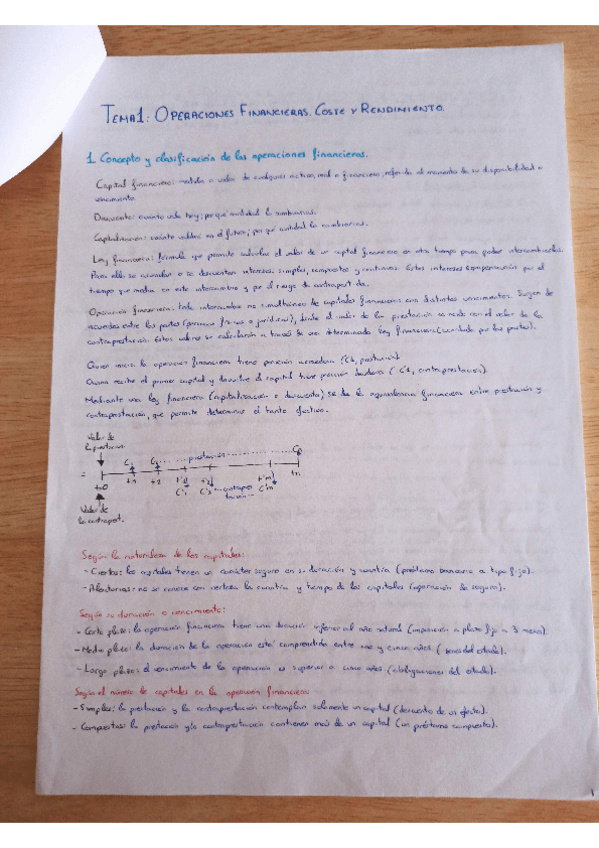 TEMA 1: OPERACIONES FINANCIERAS. COSTE Y RENDIMIENTO.
1. Concepto y clasificación de las operaciones financieras.
Capital financiero: medida o valor de cualquier activo, real o financiero, referido al momento de su disponibilidad o
vencimiento.
Descuento: cuánto vale hoy; por qué cantidad lo cambiamos.
Capitalización: cuánto valdrá en el futuro; por qué cantidad lo cambiamos.
Ley financiera: fórmula que permite calcular el valor de un capital financiero en otro tiempo para poder intercambiarlo.
Para ello se acumulan o se descuentan intereses: simples, compuestos y continuos. Estos intereses compensarán por el
tiempo que media en este intercambio y por el riesgo de contrapartida.
Operación financiera: todo intercambio no simultáneo de capitales financieros con distintos vencimientos. Surgen de
acuerdos entre las partes (personas físicas o jurídicas), donde el valor de la prestación se iguala con el valor de la
contraprestación. Estos valores se calcularán a través de una determinada ley financiera (acordada por las partes).
Quien inicia la operación financiera tiene posición acreedora (C1, prestación).
Quien recibe el primer capital y devuelve el capital tiene posición deudora (C'1, contraprestación).
Mediante una ley financiera (capitalización o descuento) se da la equivalencia financiera entre prestación y
contraprestación, que permite determinar el tanto efectivo.
Valor de
la prestación
C1 C2 prestación Cn
t=0 t1 t2 t'1 t'2 t'm tn
C'1 C'2 contrapres C'm
tación
Valor de
la contraprest.
Según la naturaleza de los capitales:
- Ciertas: los capitales tienen un carácter seguro en su duración y cuantía (préstamo bancario a tipo fijo).
- Aleatorias: no se conoce con certeza la cuantía y tiempo de los capitales (operación de seguro).
Según su duración o vencimiento:
- Corto plazo: la operación financiera tiene una duración inferior al año natural (imposición a plazo fijo a 3 meses).
- Medio plazo: la duración de la operación está comprendida entre uno y cinco años (bonos del estado).
- Largo plazo: el vencimiento de la operación es superior a cinco años (obligaciones del estado).
Según el número de capitales en la operación financiera:
- Simples: la prestación y la contraprestación contemplan solamente un capital (descuento de un efecto).
- Compuestas: la prestación y/o contraprestación contienen más de un capital (un préstamo compuesto).